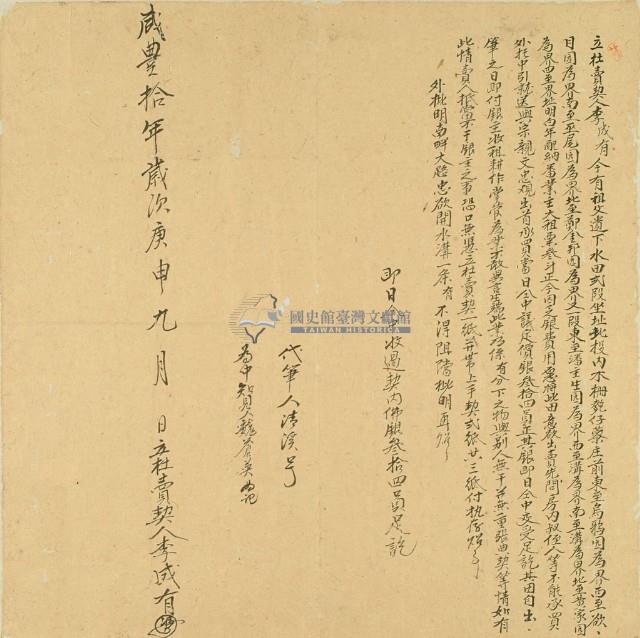 立杜賣契人李成有今有祖父遺下水田貳段坐址北投內木柵
庄前東至烏鴉田為界西至欲
目田為界南至
尾田為界北至鄭
田為界又一段東至潘主生田為界西至溝為界南至溝為界北至黃家田
為界四至界址明白年配納番業主大租粟叁斗正今因乏銀費用
將此田
欲出賣先問房內叔侄人等不能承買
外托中引就送與宗親文忠觀出首承買當日仝中議定價銀叁拾四員正其銀即日仝中交受足訖其田自出
筆之日即付銀主收租耕作掌管為業不敢異言生端此業
係有分下之物與別人無干亦無重張典契等情如有
此情賣人抵當不干銀主之事恐口無憑立杜賣契一紙并帶上手契貳紙共三紙付執存炤
外批明南畔大路忠欲開水溝一条有不得阻擋批明再炤
即日仝收過契內佛銀叁拾四員足訖
代筆人清溪号
為中知見人
咸豐拾年歲次庚申九月 日立杜賣契人李成有
國史館臺灣文獻館
TAIWAN HISTORICA